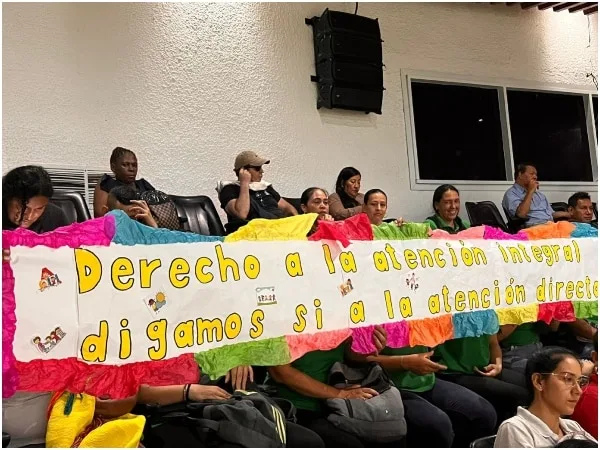 Derecho a la atención integral
digamos si a la atención directa